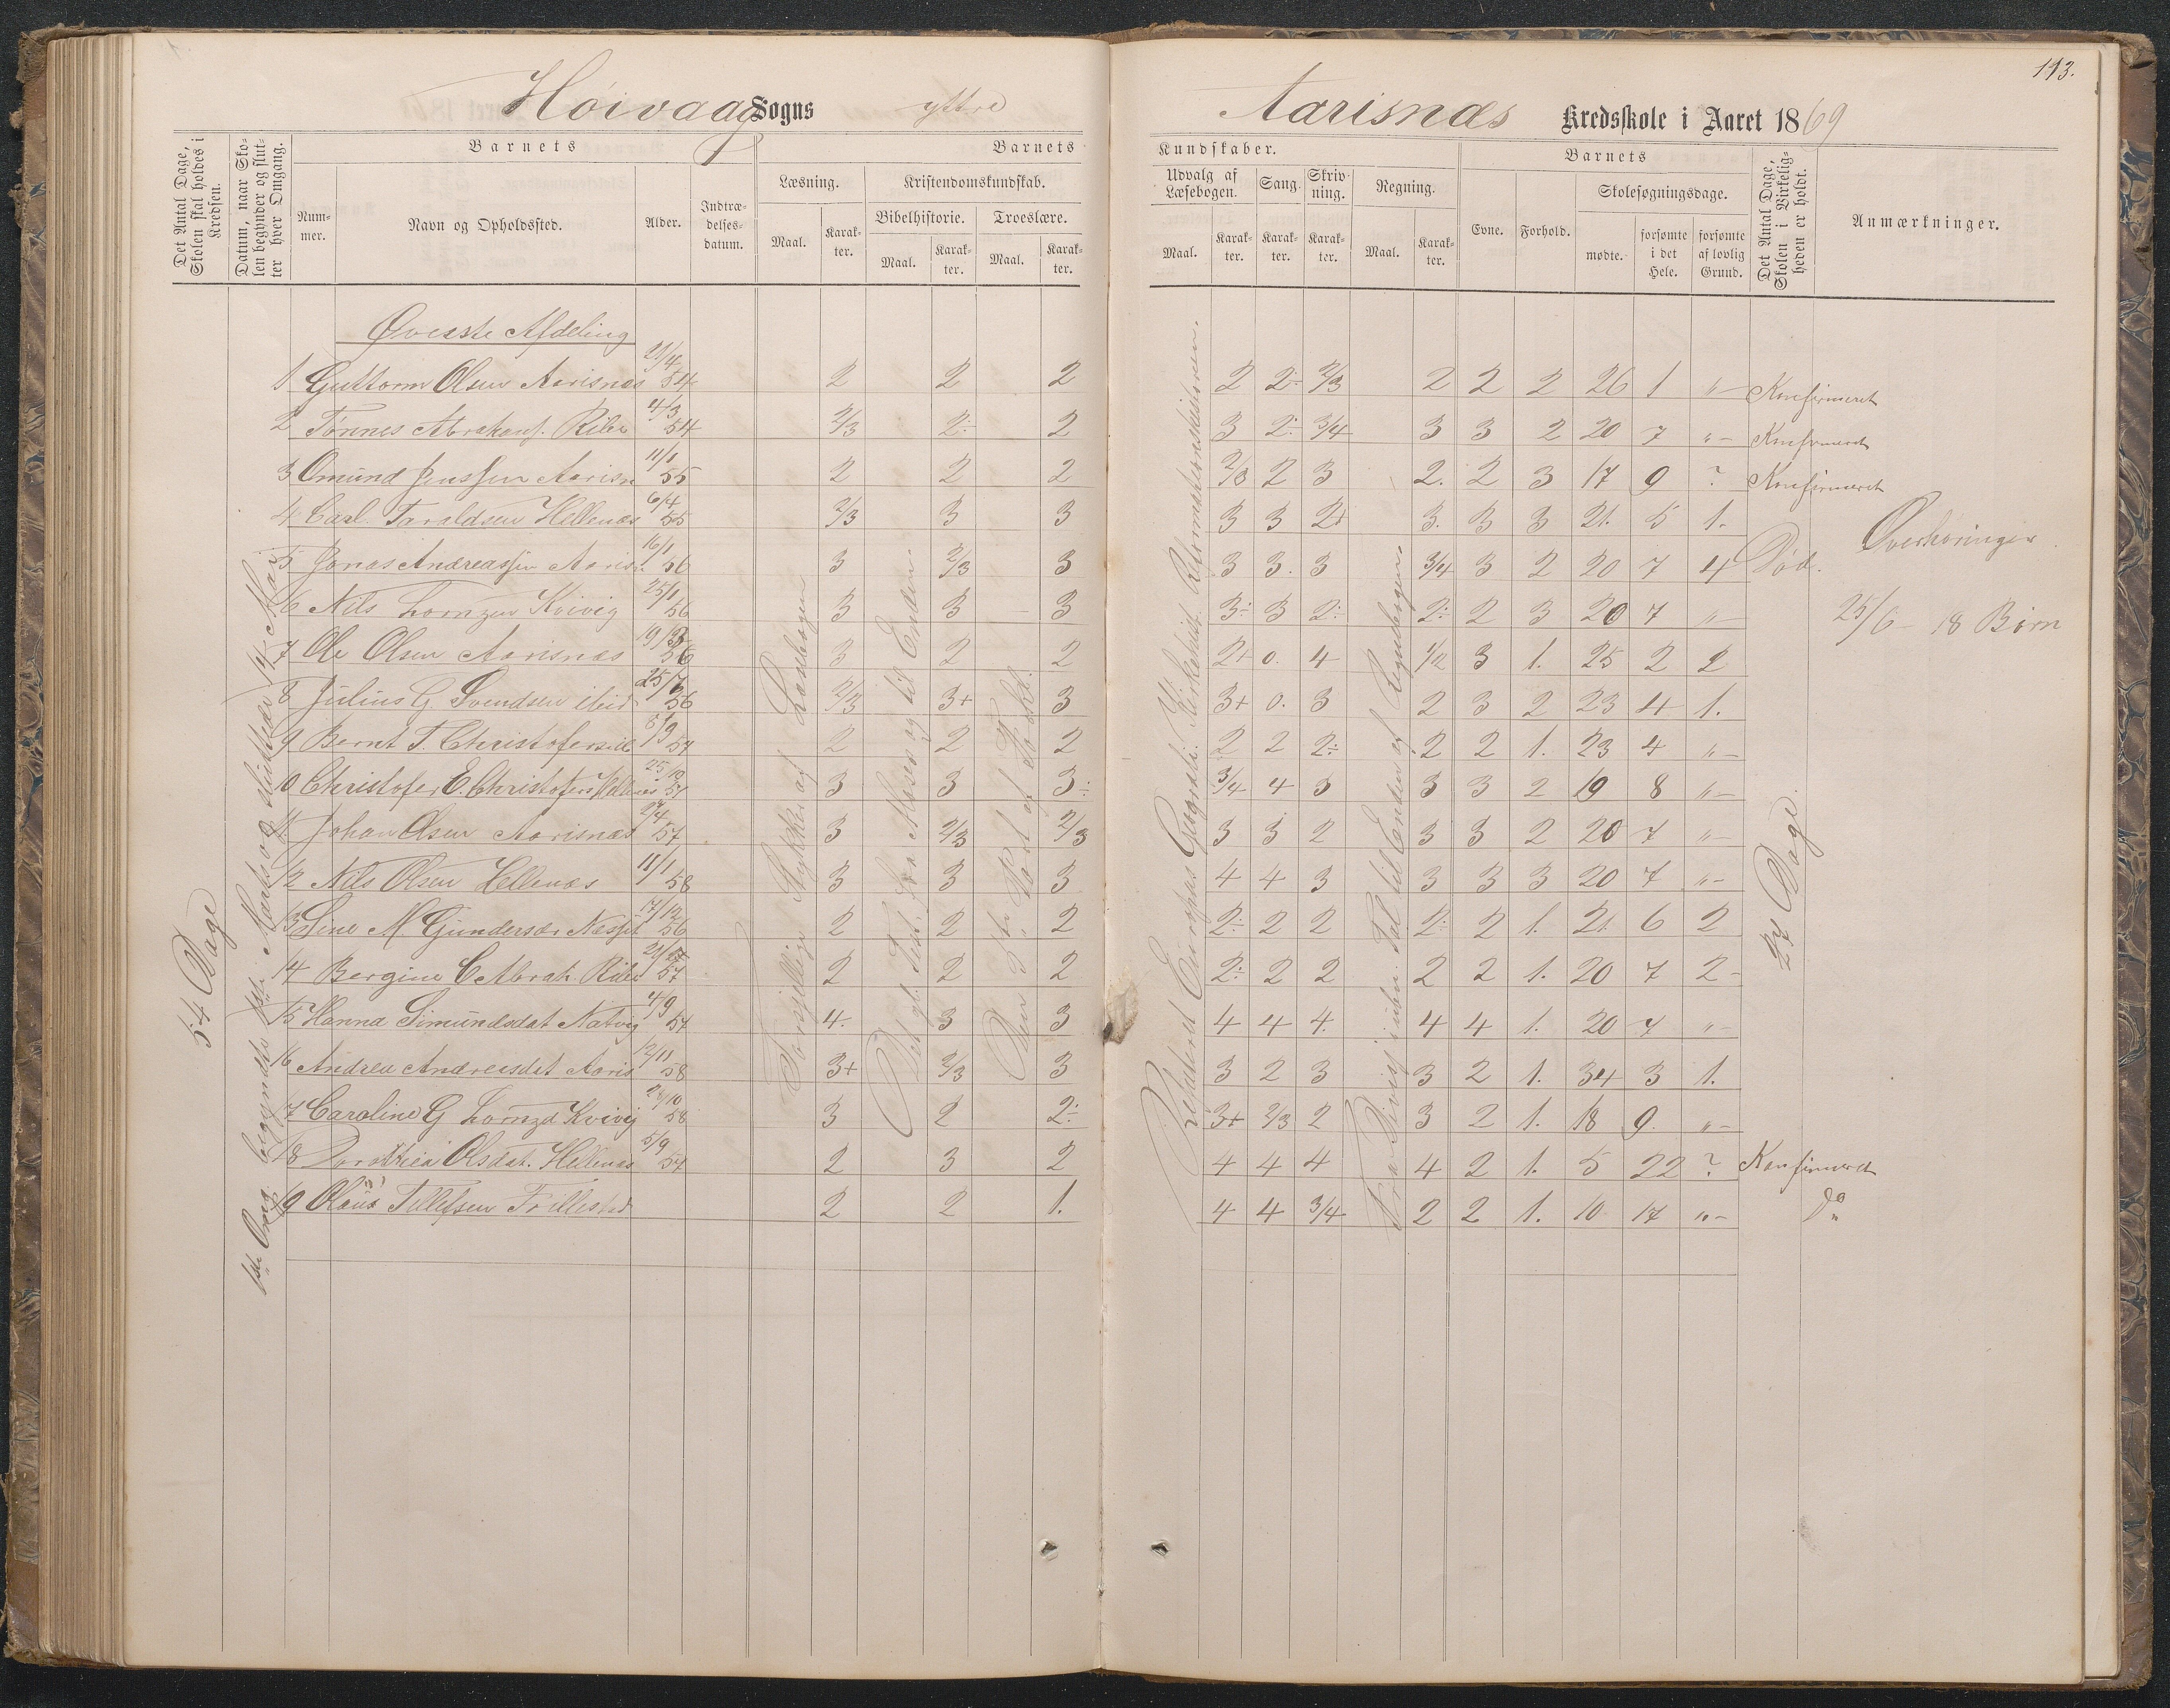 113.
Høivaag Sogns yttre Aarisnæs Kredsskole i Aaret 1869
Det Antal Dage, Skolen skal holdes i Kredsen.
Datum, naar Skolen begynder og slutter hver Omgang.
Barnets
Nummer.
Navn og Opholdssted.
Alder.
Indtrædelsesdatum.
Barnets Kundskaber.
Læsning.
Maal.
Karakter.
Kristendomskundskab.
Bibelhistorie.
Maal.
Karakter.
Troeslære.
Maal.
Karakter.
Udvalg af Læsebogen.
Maal.
Karakter.
Sang.
Karakter.
Skrivning.
Karakter.
Regning.
Maal.
Karakter.
Barnets
Evne.
Forhold.
Skolesøgningsdage.
mødte.
forsømte i det Hele.
forsømte af lovlig Grund.
Det Antal Dage, Skolen i Virkeligheden er holdt.
Anmærkninger.
54 Dage
1ste Omg. begyndte 1ste Marts og sluttede 14 Mai
Øverste Afdeling
1 Guttorm Olsen Aarisnæs 21/4 54 2 2 2 2 2÷ 2/3 2 2 2 26 1 "- Konfirmeret
2 Tønnes Abrahams. Ribe 4/3 54 2/3 2÷ 2 3 2÷ 3/4 3 3 2 20 7 "- Konfirmeret
3 Omund Jenssen Aarisn 11/1 55 2 2 2 2/3 2 3 2. 2 3 17 9 ? Konfirmeret
4 Carl Taraldsen Hellenæs 6/4 55 2/3 3 3 3 3 2+ 3. 3 3 21. 5 1.
5 Jonas Andreassen Aarisn 16/1 56 3 2/3 3 3 3. 3 3/4 3 2 20 7 4 Død.
6 Nils Lornzen Kvivig 25/1 56 3 3 3 3÷ 3 2÷ 2÷ 2 3 20 7 "-
7 Ole Olsen Aarisnæs 19/3 56 3 2 2 2+ 0. 4 1/2 3 1. 25 2 2
8 Julius G Svendsen ibid 25/7 56 2/3 3+ 3 3+ 0. 3 2 3 2 23 4 1.
9 Bernt T. Christofersen 2 2 2 2 2 2÷ 2 2 1. 23 4 "-
10 Christofer E. Christofers Hellenæs 25/10 57 3 3 3÷ 3/4 4 3 3 3 2 19 8 "-
11 Johan Olsen Aarisnæs 27/4 57 3 2/3 2/3 3 3 2 3 3 2 20 7 "-
12 Nils Olsen Hellenæs 11/1 58 3 3 3 4 4 3 3 3 3 20 7 "-
13 Sine M. Gundersdr 17/12 56 2 2 2 2÷ 2 2 2÷ 2 1. 21. 6 2
14 Bergine C Abrah. Ribe 57 2 2 2 2÷ 2 2 2 2 1. 20 7 2-
15 Hanna Simundsdat Natvig 4/9 57 4. 3 3 4 4 4. 4 4 1. 20 7 "-
16 Andrea Andreasdat Aaris 12/11 58 3+ 2/3 3 3 2 3 3 2 1. 34 3 1.
17 Caroline G Lornzd Kvivig 29/10 58 3 2 2÷ 3+ 2/3 2 3 2 1. 18 9. "-
18 Dorothea Olsdat. Hellenæs 5/9 54 2 3 2 4 4 4 4 2 1. 5 22 ? Konfirmeret
19 Olaus Tellefsen 2 2 1. 4 4 3/4 2 2 1. 10 17 "- Do
Forskjellige Stykker af Læsebogen
Det gl. Test. fra Moses og til Enden
Den 3die Part af Forkl.
Repeteret Europas Geografi. Kirkehist. Reformationshistorien.
Fra Division i uben. Tal til Enden af Regnebogen
27 Dage.
Overhøringen
25/6 - 18 Børn